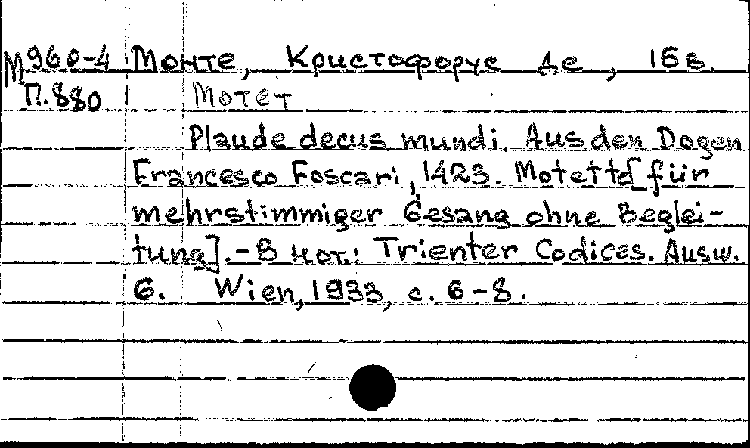 М960-4 Монте, Кристофорус де, 15в.
П.880 Мотет
Plaude decus mundi. Aus den Dogen
Francesco Foscari, 1423. Motette [für
mehrstimmiger Gesang ohne Beglei-
tung]. - В нот.: Trienter Codices. Ausw.
6. Wien, 1933, с. 6-8.